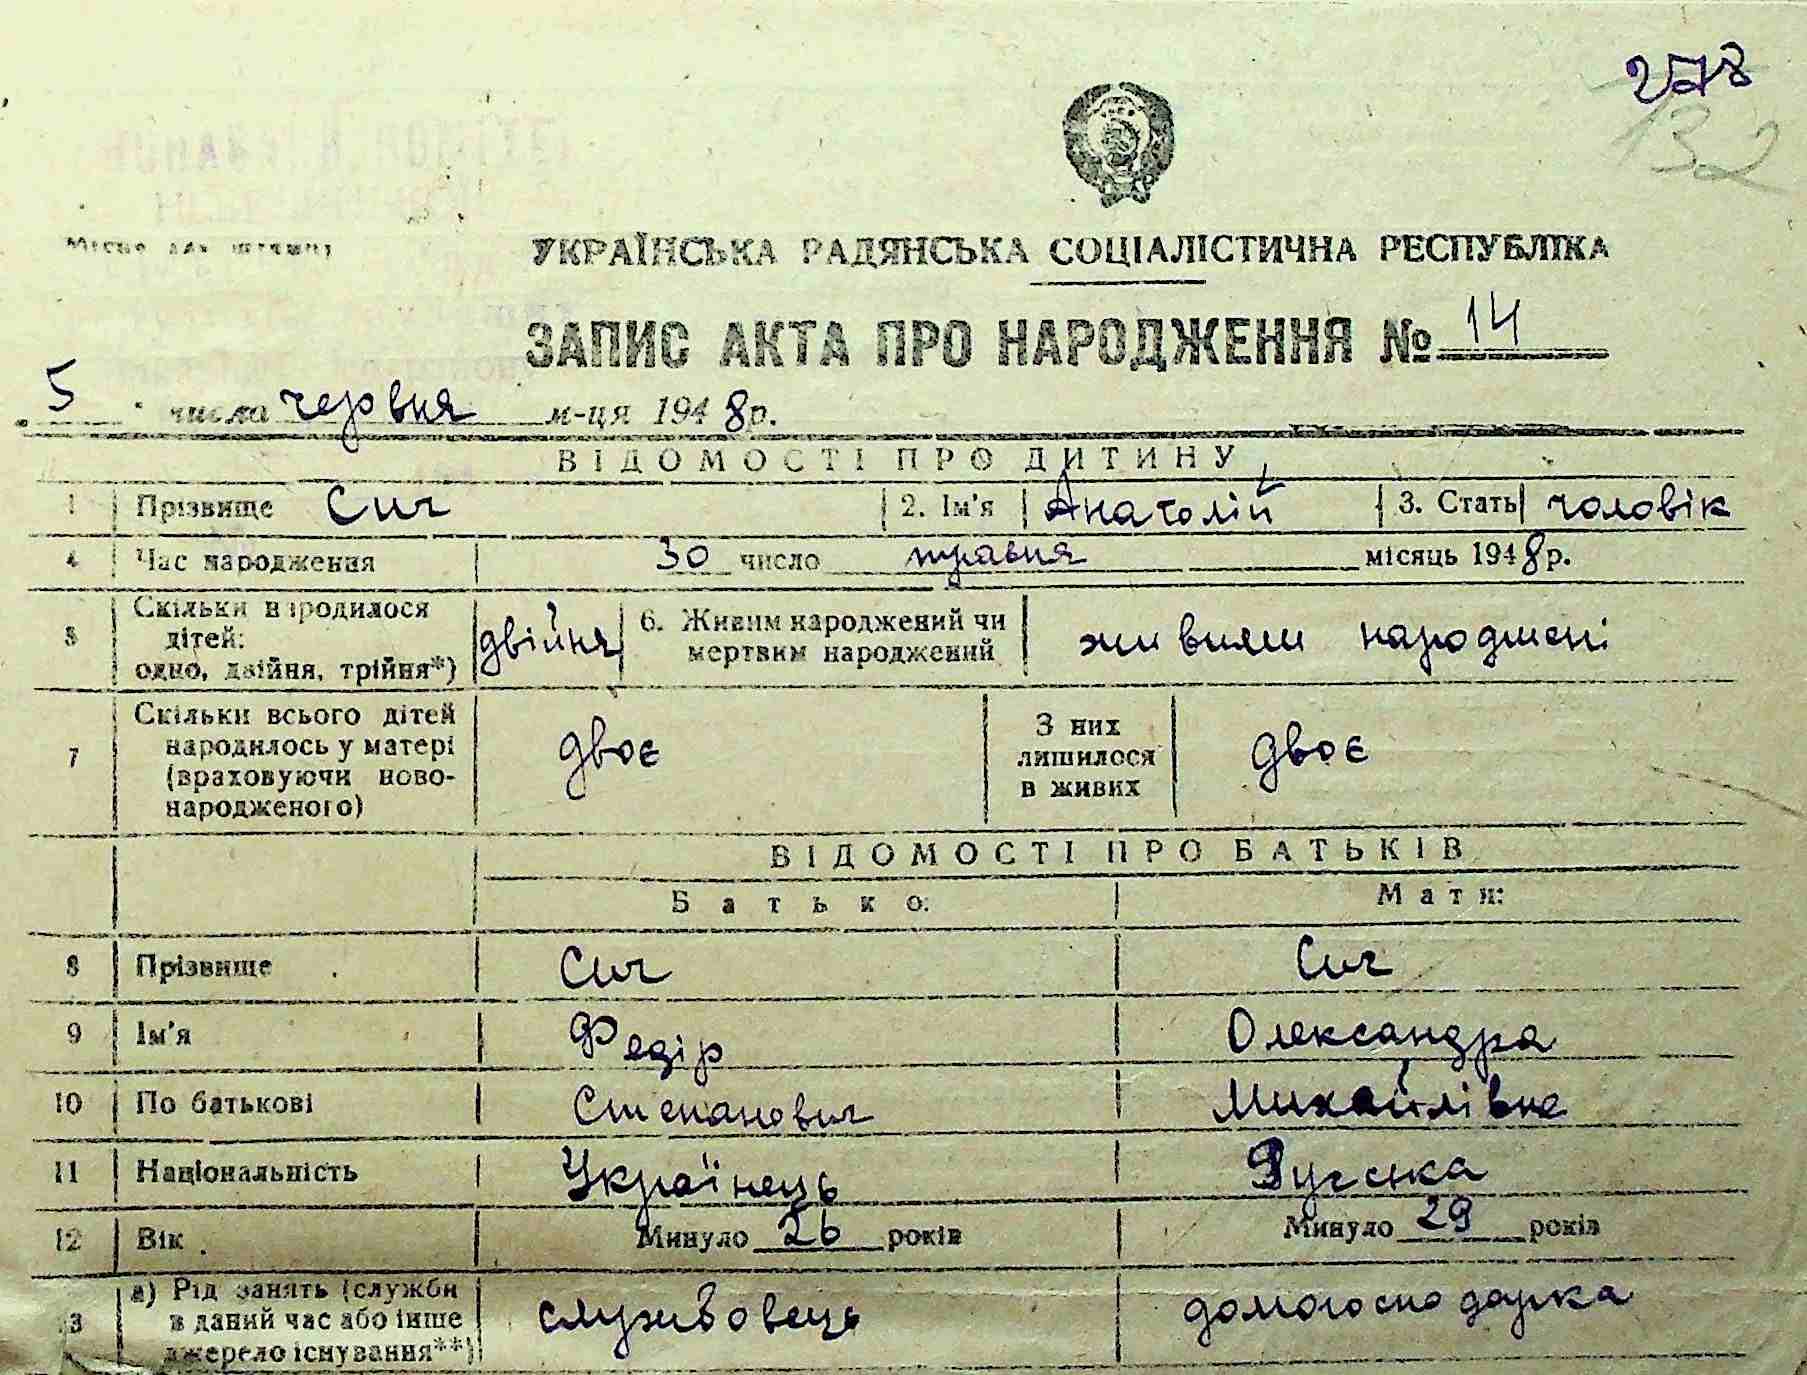 278
132
Місце для штампу
УКРАЇНСЬКА РАДЯНСЬКА СОЦІАЛІСТИЧНА РЕСПУБЛІКА
ЗАПИС АКТА ПРО НАРОДЖЕННЯ № 14
5 числа червня м-ця 1948 р.
ВІДОМОСТІ ПРО ДИТИНУ
1 Прізвище Сич 2. Ім'я Анатолій 3. Стать чоловік
4 Час народження 30 число травня місяць 1948 р.
5 Скільки народилося дітей: одно, двійня, трійня*) двійня 6. Живим народжений чи мертвим народжений живими народжені
7 Скільки всього дітей народилось у матері (враховуючи ново-народженого) двоє З них лишилося в живих двоє
ВІДОМОСТІ ПРО БАТЬКІВ
Батько: Мати:
8 Прізвище Сич Сич
9 Ім'я Федір Олександра
10 По батькові Степанович Михайлівна
11 Національність Українець Руська
12 Вік Минуло 26 років Минуло 29 років
13 а) Рід занять (служби в даний час або інше джерело існування**) службовець домогосподарка